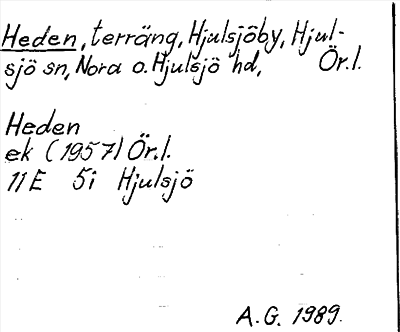 Heden, terräng, Hjulsjöby, Hjul-
sjö sn, Nora o. Hjulsjö hd, Ör.l.
Heden
ek (1957) Ör.l.
11E 5i Hjulsjö
A.G. 1989.